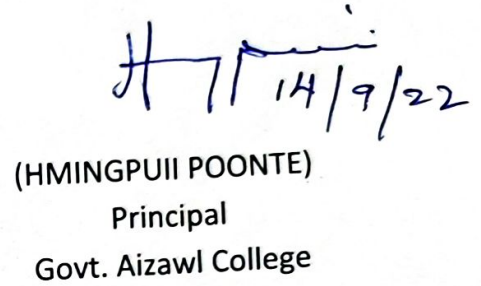 14/9/22
(HMINGPUII POONTE)
Principal
Govt. Aizawl College